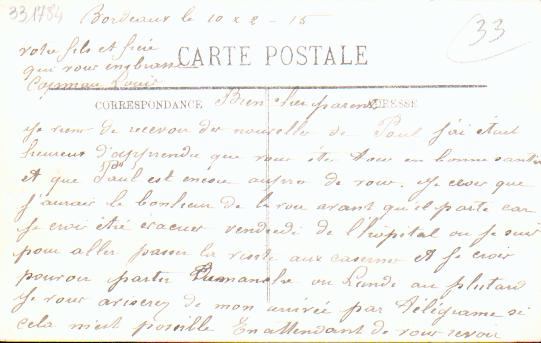 331784
Bordeaux le 10 x 2 - 15
33
votre fils et frère
qui vous embrasse
CARTE POSTALE
Louis
CORRESPONDANCE
Bien cher parents
ADRESSE
Je viens de recevoir des nouvelles de Paul j'ai était
heureux d'apprendre que vous éte tous en bonne santé
et que Paul est encore aupre de vous. Je crois que
j'aurais le bonheur de le voir avant qu'il parte car
Je croi étre évacuer vendredi de l'hôpital ou je suis
pour aller passer la visite aux casernes et Je crois
pouvoir partir Dimanche ou Lundi au plutard
Je vous aviserez de mon arrivée par Télégrame si
cela m'est possible En attendant de vous revoir